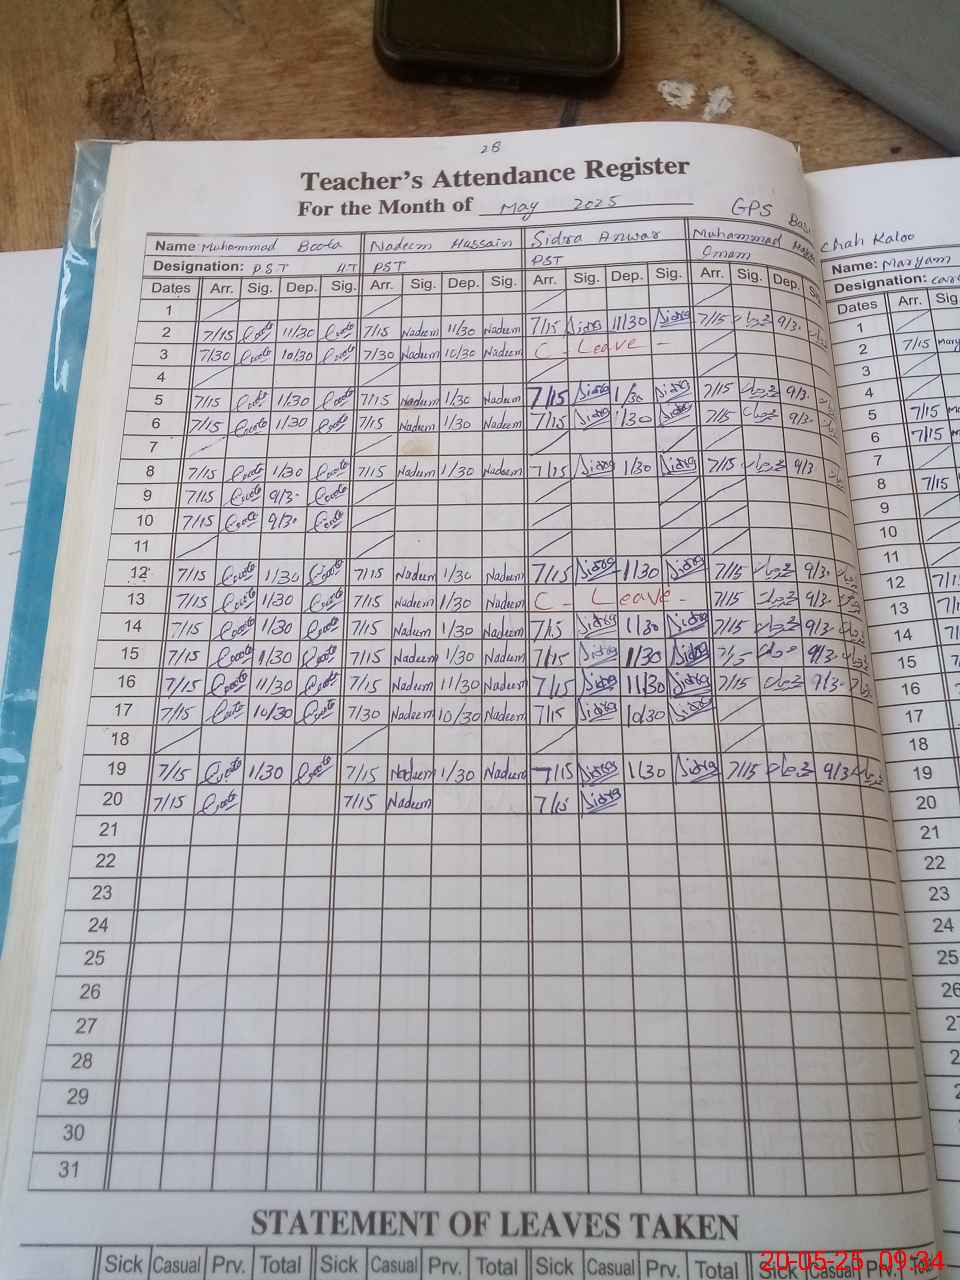 28
Teacher's Attendance Register
For the Month of May 2025
GPS
Chah Kaloo
Name: Muhammad Boota Nadeem Hussain Sidra Anwar Muhammad Name: Maryam
Designation: PST HT PST PST Designation:
Dates Arr. Sig. Dep. Sig. Arr. Sig. Dep. Sig. Arr. Sig. Dep. Sig. Arr. Sig. Dep. Dates Arr.
1 1
2 7/15 Boota 11/30 Boota 7/15 Nadeem 11/30 Nadeem 7/15 Sidra 11/30 Sidra 7/15 9/3. 2 7/15
3 7/30 Boota 10/30 Boota 7/30 Nadeem 10/30 Nadeem C - Leave - 3
4 4
5 7/15 Boota 1/30 Boota 7/15 Nadeem 1/30 Nadeem 7/15 Sidra 1/30 Sidra 7/15 9/3. 5 7/15
6 7/15 Boota 1/30 Boota 7/15 Nadeem 1/30 Nadeem 7/15 Sidra 1/30 Sidra 7/15 9/3. 6 7/15
7 7
8 7/15 Boota 1/30 Boota 7/15 Nadeem 1/30 Nadeem 7/15 Sidra 1/30 Sidra 7/15 9/3. 8 7/15
9 7/15 Boota 9/3. Boota 9
10 7/15 Boota 9/3. Boota 10
11 11
12 7/15 Boota 1/30 Boota 7/15 Nadeem 1/30 Nadeem 7/15 Sidra 1/30 Sidra 7/15 9/3. 12
13 7/15 Boota 1/30 Boota 7/15 Nadeem 1/30 Nadeem C - Leave - 7/15 9/3. 13
14 7/15 Boota 1/30 Boota 7/15 Nadeem 1/30 Nadeem 7/15 Sidra 1/30 Sidra 7/15 9/3. 14
15 7/15 Boota 1/30 Boota 7/15 Nadeem 1/30 Nadeem 7/15 Sidra 1/30 Sidra 9/3. 15
16 7/15 Boota 11/30 Boota 7/15 Nadeem 11/30 Nadeem 7/15 Sidra 11/30 Sidra 7/15 9/3. 16
17 7/15 Boota 10/30 Boota 7/30 Nadeem 10/30 Nadeem 7/15 Sidra 10/30 Sidra 17
18 18
19 7/15 Boota 1/30 Boota 7/15 Nadeem 1/30 Nadeem 7/15 Sidra 1/30 Sidra 7/15 9/3. 19
20 7/15 Boota 7/15 Nadeem 7/15 Sidra 20
21 21
22 22
23 23
24 24
25 25
26 26
27
28
29
30
31
STATEMENT OF LEAVES TAKEN
Sick Casual Prv. Total Sick Casual Prv. Total Sick Casual Prv. Total Sick Casual Prv.
20-05-25 09:34